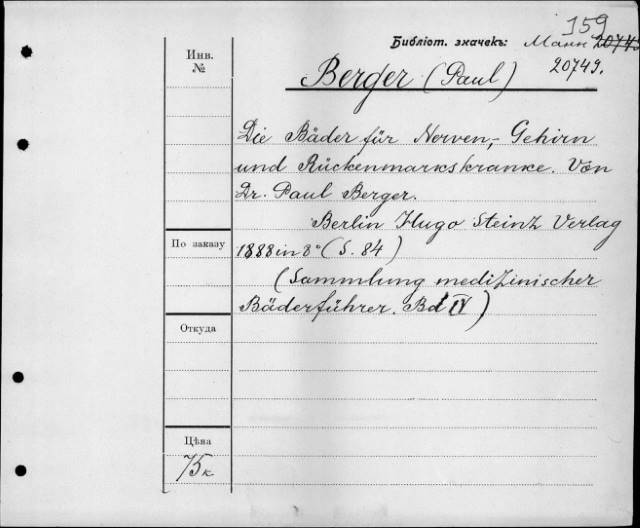 159
Библіот. значекъ: Манн 20743
20749.
Инв.
№
Berger (Paul)
Die Bäder für Nerven,- Gehirn
und Rückenmarkskranke. Von
Dr. Paul Berger.
Berlin Hugo Steinz Verlag
По заказу
1888 in 8° (S. 84)
(Sammlung medizinischer
Bäderführer. Bd IV)
Откуда
Цѣна
75 к